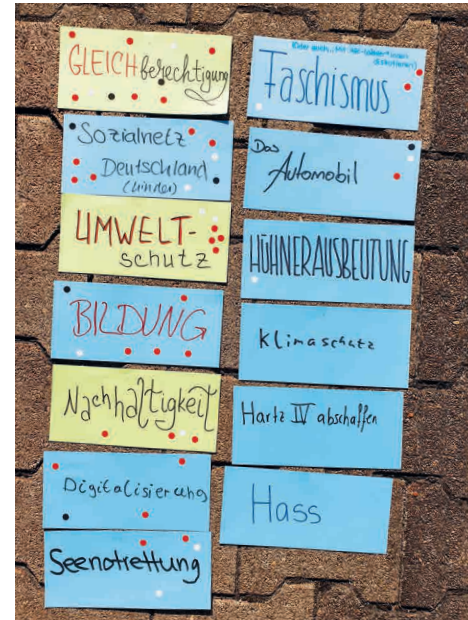 GLEICHberechtigung
Sozialnetz
Deutschland
(Kinder)
UMWELT-
schutz
BILDUNG
Nachhaltigkeit
Digitalisierung
Seenotrettung
Faschismus
Das
Automobil
HÜHNERAUSBEUTUNG
Klimaschutz
Hartz IV abschaffen
Hass